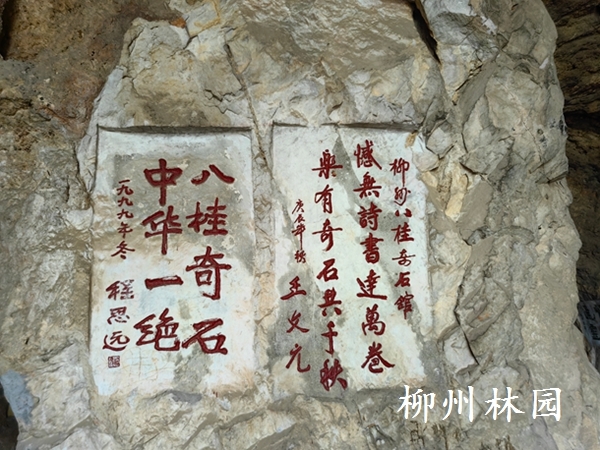 柳州八桂奇石館
憾無詩書達萬卷
樂有奇石共千秋
庚辰年秋
王文元
八桂奇石
中华一绝
一九九九年冬
程思远
柳州林园